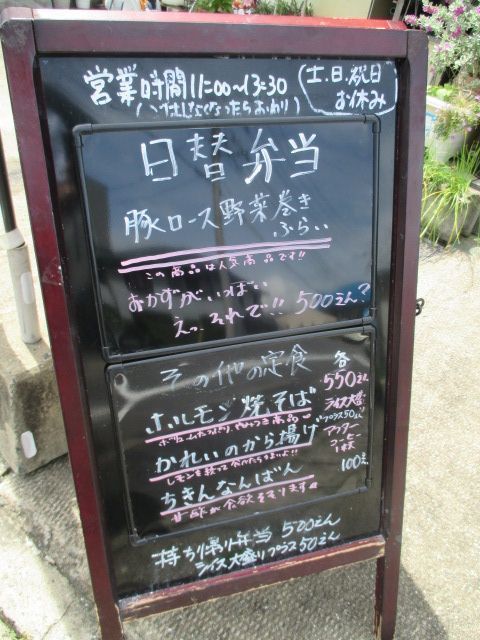 営業時間11:00〜13:30
(ごはんなくなったらおわり)
土.日.祝日
お休み
日替弁当
豚ロース野菜巻き
ふらい
この商品は人気商品です!!
おかずがいっぱい
えっ それで!! 500えん?
その他の定食
各
550えん
ホルモン焼そば
ライス大盛り
プラス50えん
かれいのから揚げ
レモンを絞って食べたらうまいよ!!
アフター
コーヒー
1杯
100えん
ちきんなんばん
甘酢が食欲をそります
持ち帰り弁当 500えん
ライス大盛りプラス50えん